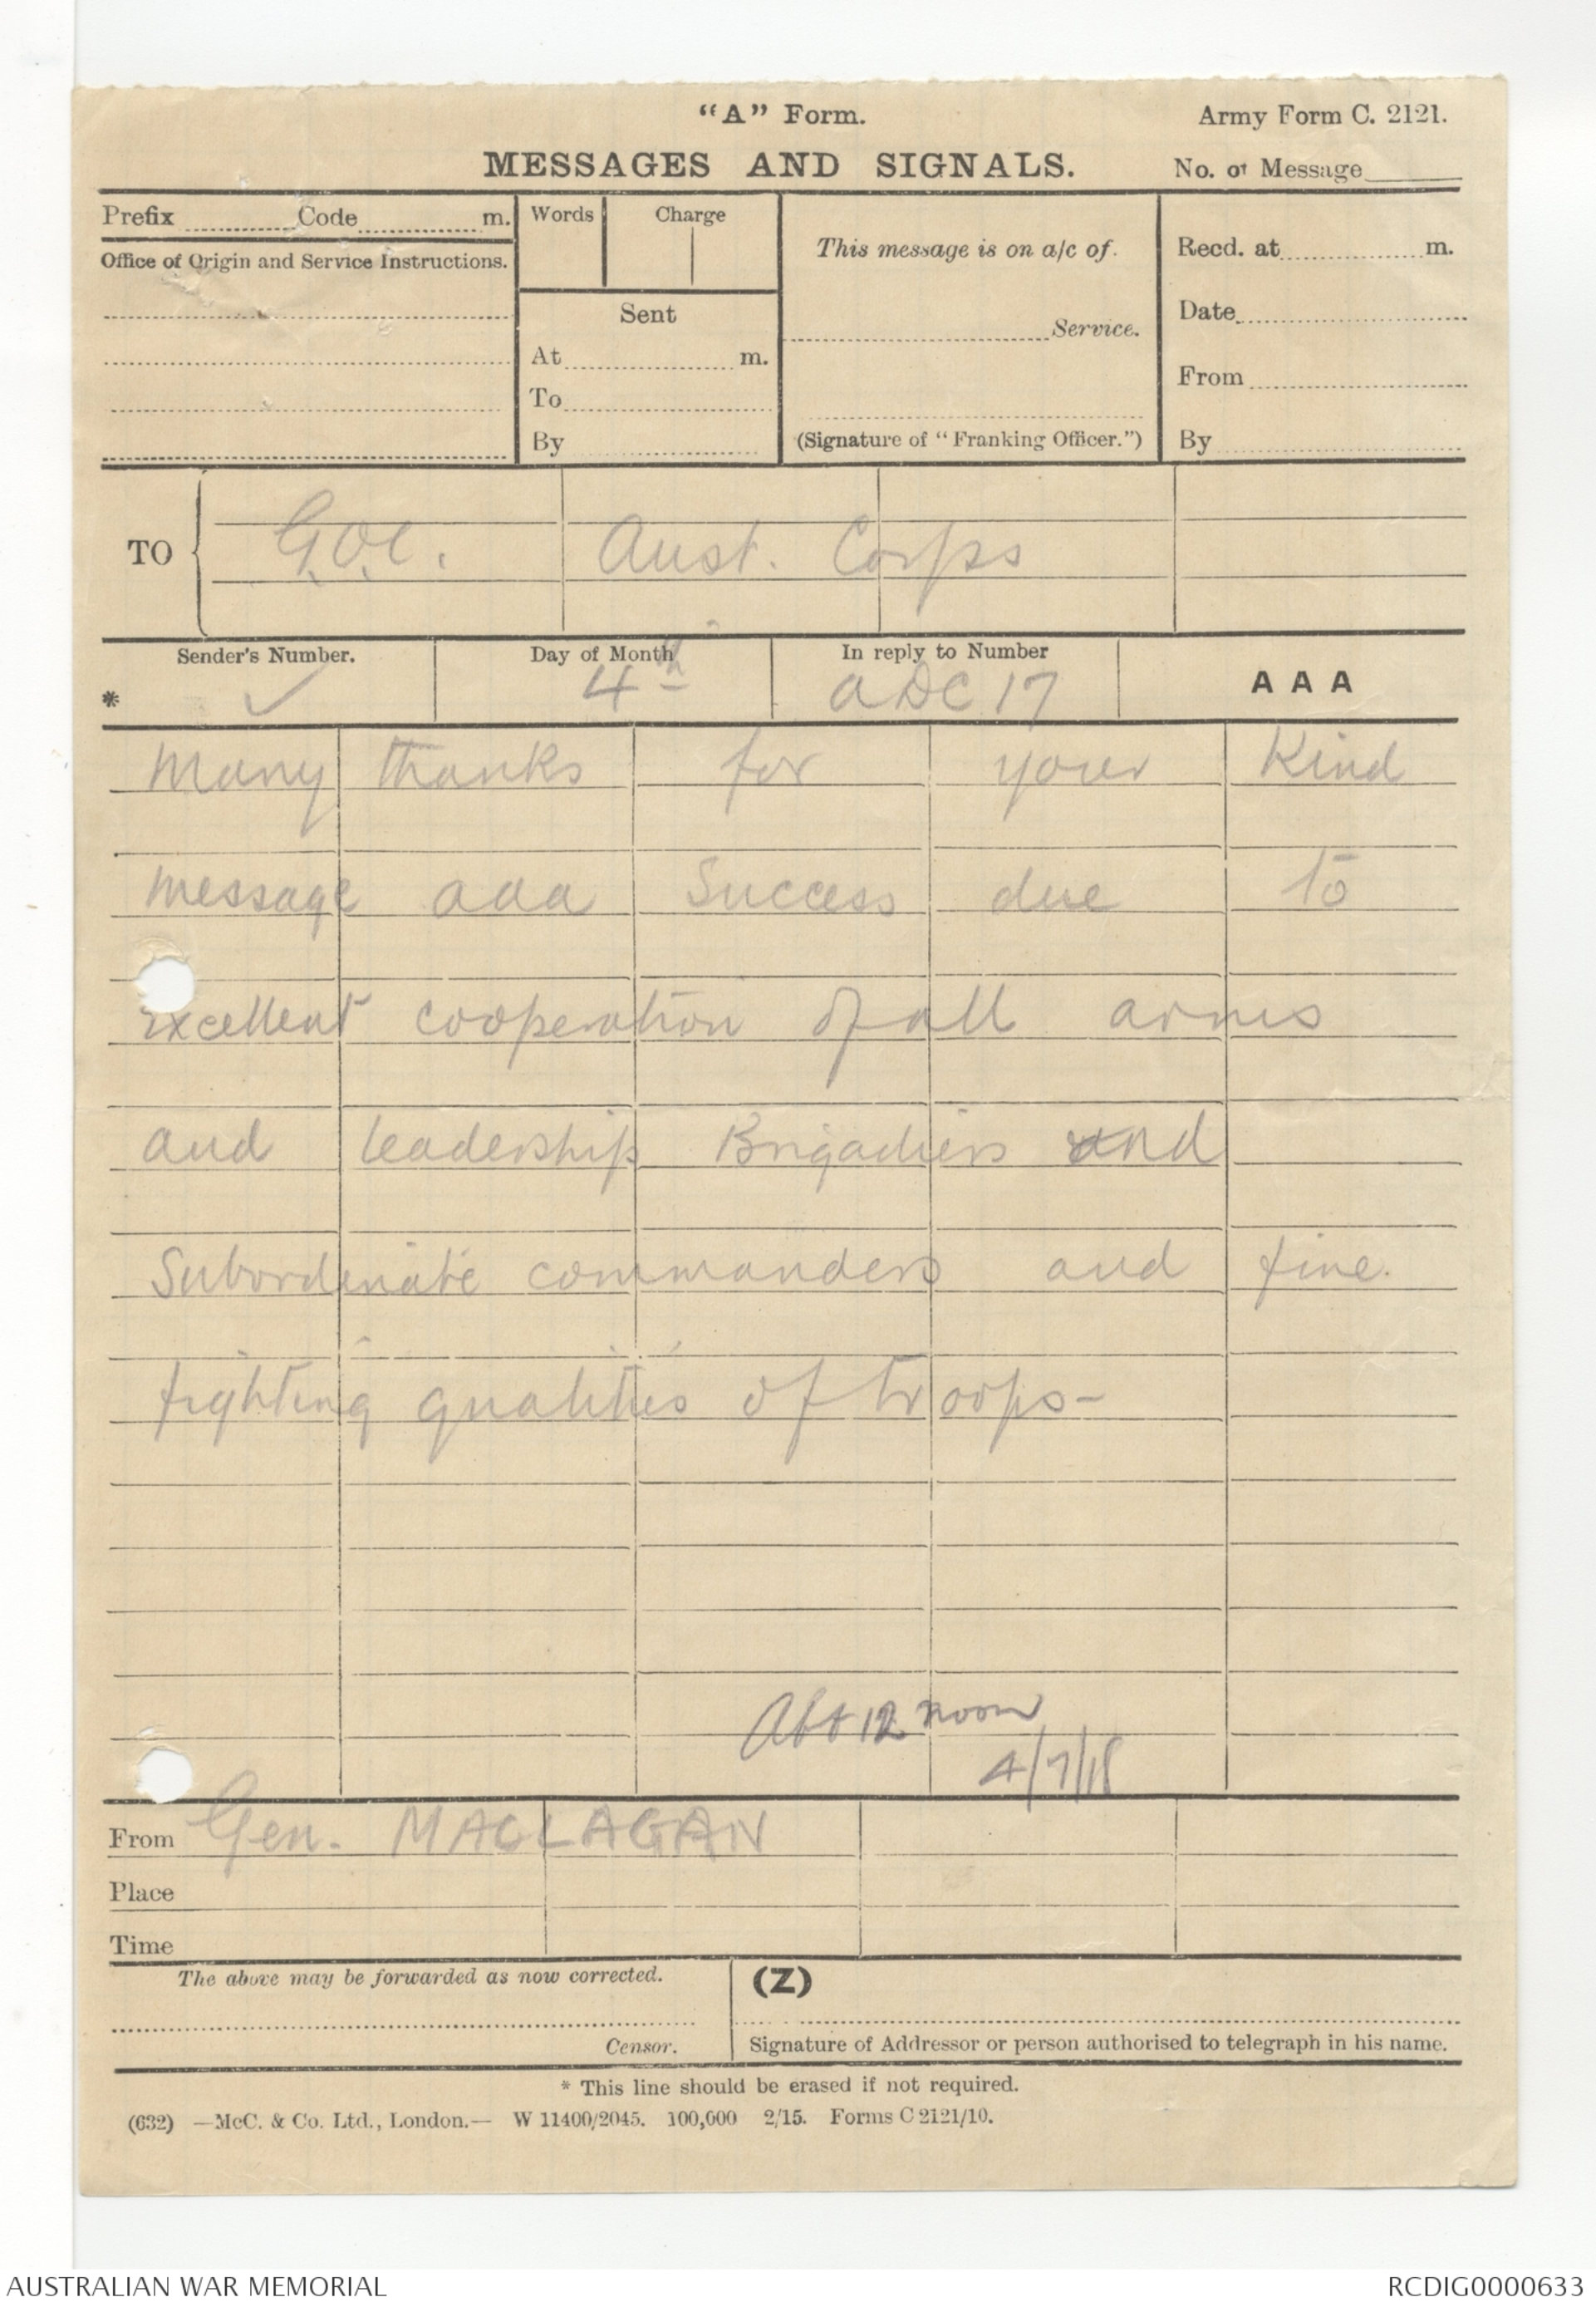 "A" Form. Army Form C. 2121.
MESSAGES AND SIGNALS. No. of Message
Prefix Code m. Words Charge
This message is on a/c of. Recd. at m.
Office of Origin and Service Instructions.
Sent Date
Service.
At m.
From
To
By (Signature of "Franking Officer.") By
TO G.O.C. Aust. Corps
Sender's Number. Day of Month In reply to Number
* ✓ 4th ADC 17 AAA
Many thanks for your kind
message aaa Success due to
excellent cooperation of all arms
and leadership Brigadiers and
Subordinate commanders and fine.
fighting qualities of troops-
Abt 12 noon
4/7/18
From Gen. MACLAGAN
Place
Time
The above may be forwarded as now corrected. (Z)
Censor. Signature of Addressor or person authorised to telegraph in his name.
* This line should be erased if not required.
(632) —McC. & Co. Ltd., London.— W 11400/2045. 100,000 2/15. Forms C 2121/10.
AUSTRALIAN WAR MEMORIAL RCDIG0000633